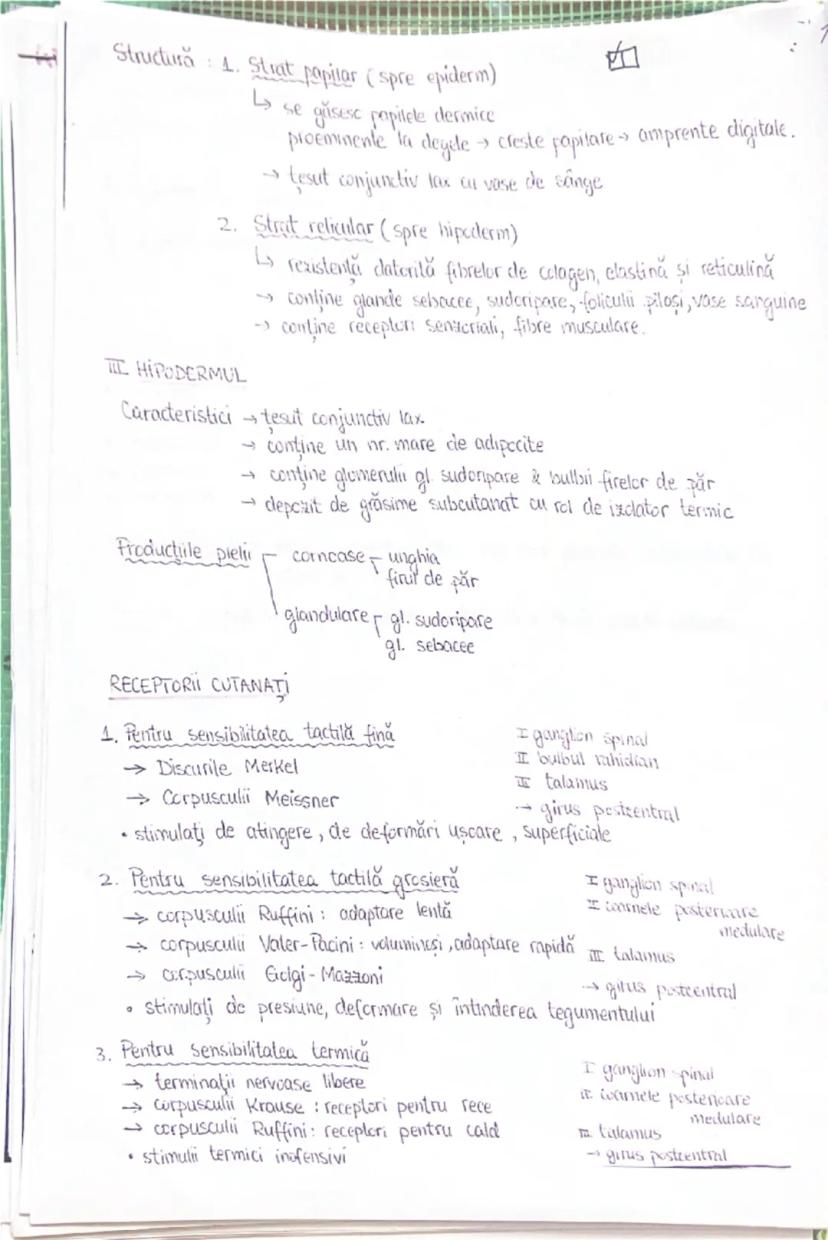 Structură : 1. Strat papilar (spre epiderm)
↳ se găsesc papilele dermice
proeminente la degete → creste papilare → amprente digitale.
→ țesut conjunctiv lax cu vase de sânge
2. Strat reticular (spre hipoderm)
↳ rezistență datorită fibrelor de colagen, elastină și reticulină
→ conține glande sebacee, sudoripare, foliculi piloși, vase sanguine
→ conține receptori senzoriali, fibre musculare.
III HIPODERMUL
Caracteristici → țesut conjunctiv lax
→ conține un nr. mare de adipocite
→ conține glomerulii gl. sudoripare & bulbii firelor de păr
→ depozit de grăsime subcutanat cu rol de izolator termic
Producțiile pielii cornoase unghia
firul de păr
glandulare gl. sudoripare
gl. sebacee
RECEPTORII CUTANAȚI
1. Pentru sensibilitatea tactilă fină
I ganglion spinal
→ Discurile Merkel
II bulbul rahidian
III talamus
→ Corpusculii Meissner
→ girus postcentral
• stimulați de atingere, de deformări ușoare, superficiale
2. Pentru sensibilitatea tactilă grosieră
I ganglion spinal
→ corpusculii Ruffini : adaptare lentă
II coarnele posterioare
medulare
→ corpusculii Vater-Pacini : voluminoși, adaptare rapidă
III talamus
→ corpusculii Golgi-Mazzoni
→ girus postcentral
• stimulați de presiune, deformare și întinderea tegumentului
3. Pentru sensibilitatea termică
I ganglion spinal
→ terminații nervoase libere
II coarnele posterioare
→ corpusculii Krause : receptori pentru rece
medulare
→ corpusculii Ruffini : receptori pentru cald
III talamus
• stimulii termici inofensivi
→ girus postcentral